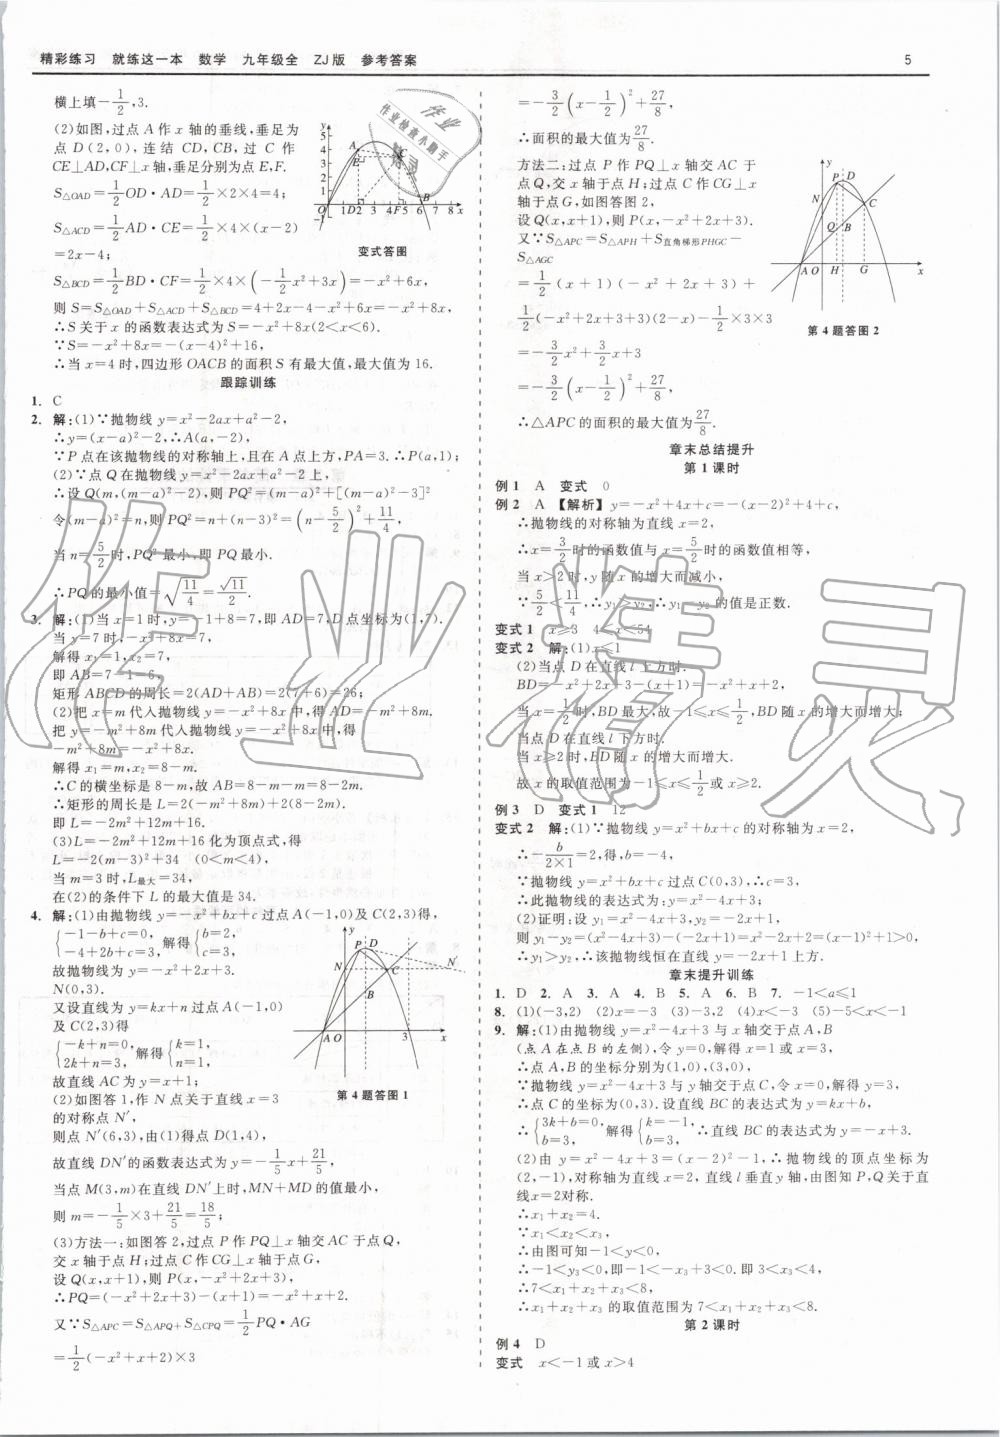 精彩练习 就练这一本 数学 九年级全 ZJ版 参考答案 5
横上填-1/2,3.
(2)如图,过点A作x轴的垂线,垂足为
点D(2,0),连结CD,CB,过C作
CE⊥AD,CF⊥x轴,垂足分别为点E,F.
S△OAD=1/2OD·AD=1/2×2×4=4;
S△ACD=1/2AD·CE=1/2×4×(x-2)
=2x-4;
变式答图
S△BCD=1/2BD·CF=1/2×4×(-1/2x²+3x)=-x²+6x,
则S=S△OAD+S△ACD+S△BCD=4+2x-4-x²+6x=-x²+8x,
∴S关于x的函数表达式为S=-x²+8x(2<x<6).
∵S=-x²+8x=-(x-4)²+16,
∴当x=4时,四边形OACB的面积S有最大值,最大值为16.
跟踪训练
1. C
2. 解:(1)∵抛物线y=x²-2ax+a²-2,
∴y=(x-a)²-2,∴A(a,-2),
∵P点在该抛物线的对称轴上,且在A点上方,PA=3.∴P(a,1);
(2)∵点Q在抛物线y=x²+2ax+a²-2上,
∴设Q(m,(m-a)²-2),则PQ²=(m-a)²+[(m-a)²-3]²
令(m-a)²=n,则PQ²=n+(n-3)²=(n-5/2)²+11/4,
当n=5/2时,PQ²最小,即PQ最小.
∴PQ的最小值=√(11/4)=√11/2.
3. 解:(1)当x=1时,y=-1+8=7,即AD=7,D点坐标为(1,7).
当y=7时,-x²+8x=7,
解得x₁=1,x₂=7,
即AB=7-1=6,
矩形ABCD的周长=2(AD+AB)=2(7+6)=26;
(2)把x=m代入抛物线y=-x²+8x中,得AD=-m²+8m.
把y=-m²+8m代入抛物线y=-x²+8x中,得
-m²+8m=-x²+8x.
解得x₁=m,x₂=8-m.
∴C的横坐标是8-m,故AB=8-m-m=8-2m.
∴矩形的周长是L=2(-m²+8m)+2(8-2m).
即L=-2m²+12m+16.
(3)L=-2m²+12m+16化为顶点式,得
L=-2(m-3)²+34 (0<m<4),
当m=3时,L最大=34,
在(2)的条件下L的最大值是34.
4. 解:(1)由抛物线y=-x²+bx+c过点A(-1,0)及C(2,3)得,
{-1-b+c=0, -4+2b+c=3, 解得{b=2, c=3,
故抛物线为y=-x²+2x+3.
N(0,3).
又设直线为y=kx+n过点A(-1,0)
及C(2,3)得
{-k+n=0, 2k+n=3, 解得{k=1, n=1,
故直线AC为y=x+1;
第4题答图1
(2)如答图1,作N点关于直线x=3
的对称点N′,
则点N′(6,3),由(1)得点D(1,4),
故直线DN′的函数表达式为y=-1/5x+21/5,
当点M(3,m)在直线DN′上时,MN+MD的值最小,
则m=-1/5×3+21/5=18/5;
(3)方法一:如图答2,过点P作PQ⊥x轴交AC于点Q,
交x轴于点H;过点C作CG⊥x轴于点G,
设Q(x,x+1),则P(x,-x²+2x+3),
∴PQ=(-x²+2x+3)-(x+1)=-x²+x+2.
又∵S△APC=S△APQ+S△CPQ=1/2PQ·AG
=1/2(-x²+x+2)×3
=-3/2(x-1/2)²+27/8,
∴面积的最大值为27/8.
方法二:过点P作PQ⊥x轴交AC于
点Q,交x轴于点H;过点C作CG⊥x
轴于点G,如图答图2,
设Q(x,x+1),则P(x,-x²+2x+3).
又∵S△APC=S△APH+S直角梯形PHGC-
S△AGC
=1/2(x+1)(-x²+2x+3)+
1/2(-x²+2x+3+3)(2-x)-1/2×3×3
第4题答图2
=-3/2x²+3/2x+3
=-3/2(x-1/2)²+27/8,
∴△APC的面积的最大值为27/8.
章末总结提升
第1课时
例1 A 变式 0
例2 A 【解析】y=-x²+4x+c=-(x-2)²+4+c,
∴抛物线的对称轴为直线x=2,
∴x=3/2时的函数值与x=5/2时的函数值相等,
当x>2时,y随x的增大而减小,
∵5/2<11/4,∴y₁>y₂,∴y₁-y₂的值是正数.
变式1 x≥3 4<x<54
变式2 解:(1)x≤1
(2)当点D在直线l上方时.
BD=-x²+2x+3-(x+1)=-x²+x+2,
当x=1/2时,BD最大,故-1≤x≤1/2,BD随x的增大而增大;
当点D在直线l下方时.
当x≥2时,BD随x的增大而增大.
故x的取值范围为-1≤x≤1/2或x≥2.
例3 D 变式1 12
变式2 解:(1)∵抛物线y=x²+bx+c的对称轴为x=2,
∴-b/(2×1)=2,得,b=-4,
∵抛物线y=x²+bx+c过点C(0,3),∴c=3,
∴此抛物线的表达式为:y=x²-4x+3;
(2)证明:设y₁=x²-4x+3,y₂=-2x+1,
则y₁-y₂=(x²-4x+3)-(-2x+1)=x²-2x+2=(x-1)²+1>0,
∴y₁>y₂,∴该抛物线恒在直线y=-2x+1上方.
章末提升训练
1. D 2. A 3. A 4. B 5. A 6. B 7. -1<a≤1
8. (1)(-3,2) (2)x=-3 (3)-3,2 (4)x<-3 (5)-5<x<-1
9. 解:(1)由抛物线y=x²-4x+3与x轴交于点A,B
(点A在点B的左侧),令y=0,解得x=1或x=3,
∴点A,B的坐标分别为(1,0),(3,0),
∵抛物线y=x²-4x+3与y轴交于点C,令x=0,解得y=3,
∴点C的坐标为(0,3).设直线BC的表达式为y=kx+b,
∴{3k+b=0, b=3, 解得{k=-1, b=3, ∴直线BC的表达式为y=-x+3.
(2)由y=x²-4x+3=(x-2)²-1,∴抛物线的顶点坐标为
(2,-1),对称轴为直线x=2,直线l垂直y轴,由图知P,Q关于直
线x=2对称.
∴x₁+x₂=4.
∵x₁<x₂<x₃,
∴由图可知-1<y<0,
∴-1<y₃<0,即-1<-x₃+3<0.即3<x₃<4,
∴7<x₁+x₂+x₃<8,
∴x₁+x₂+x₃的取值范围为7<x₁+x₂+x₃<8.
第2课时
例4 D
变式 x<-1或x>4
作业精灵
作业
作业检查小助手
精灵